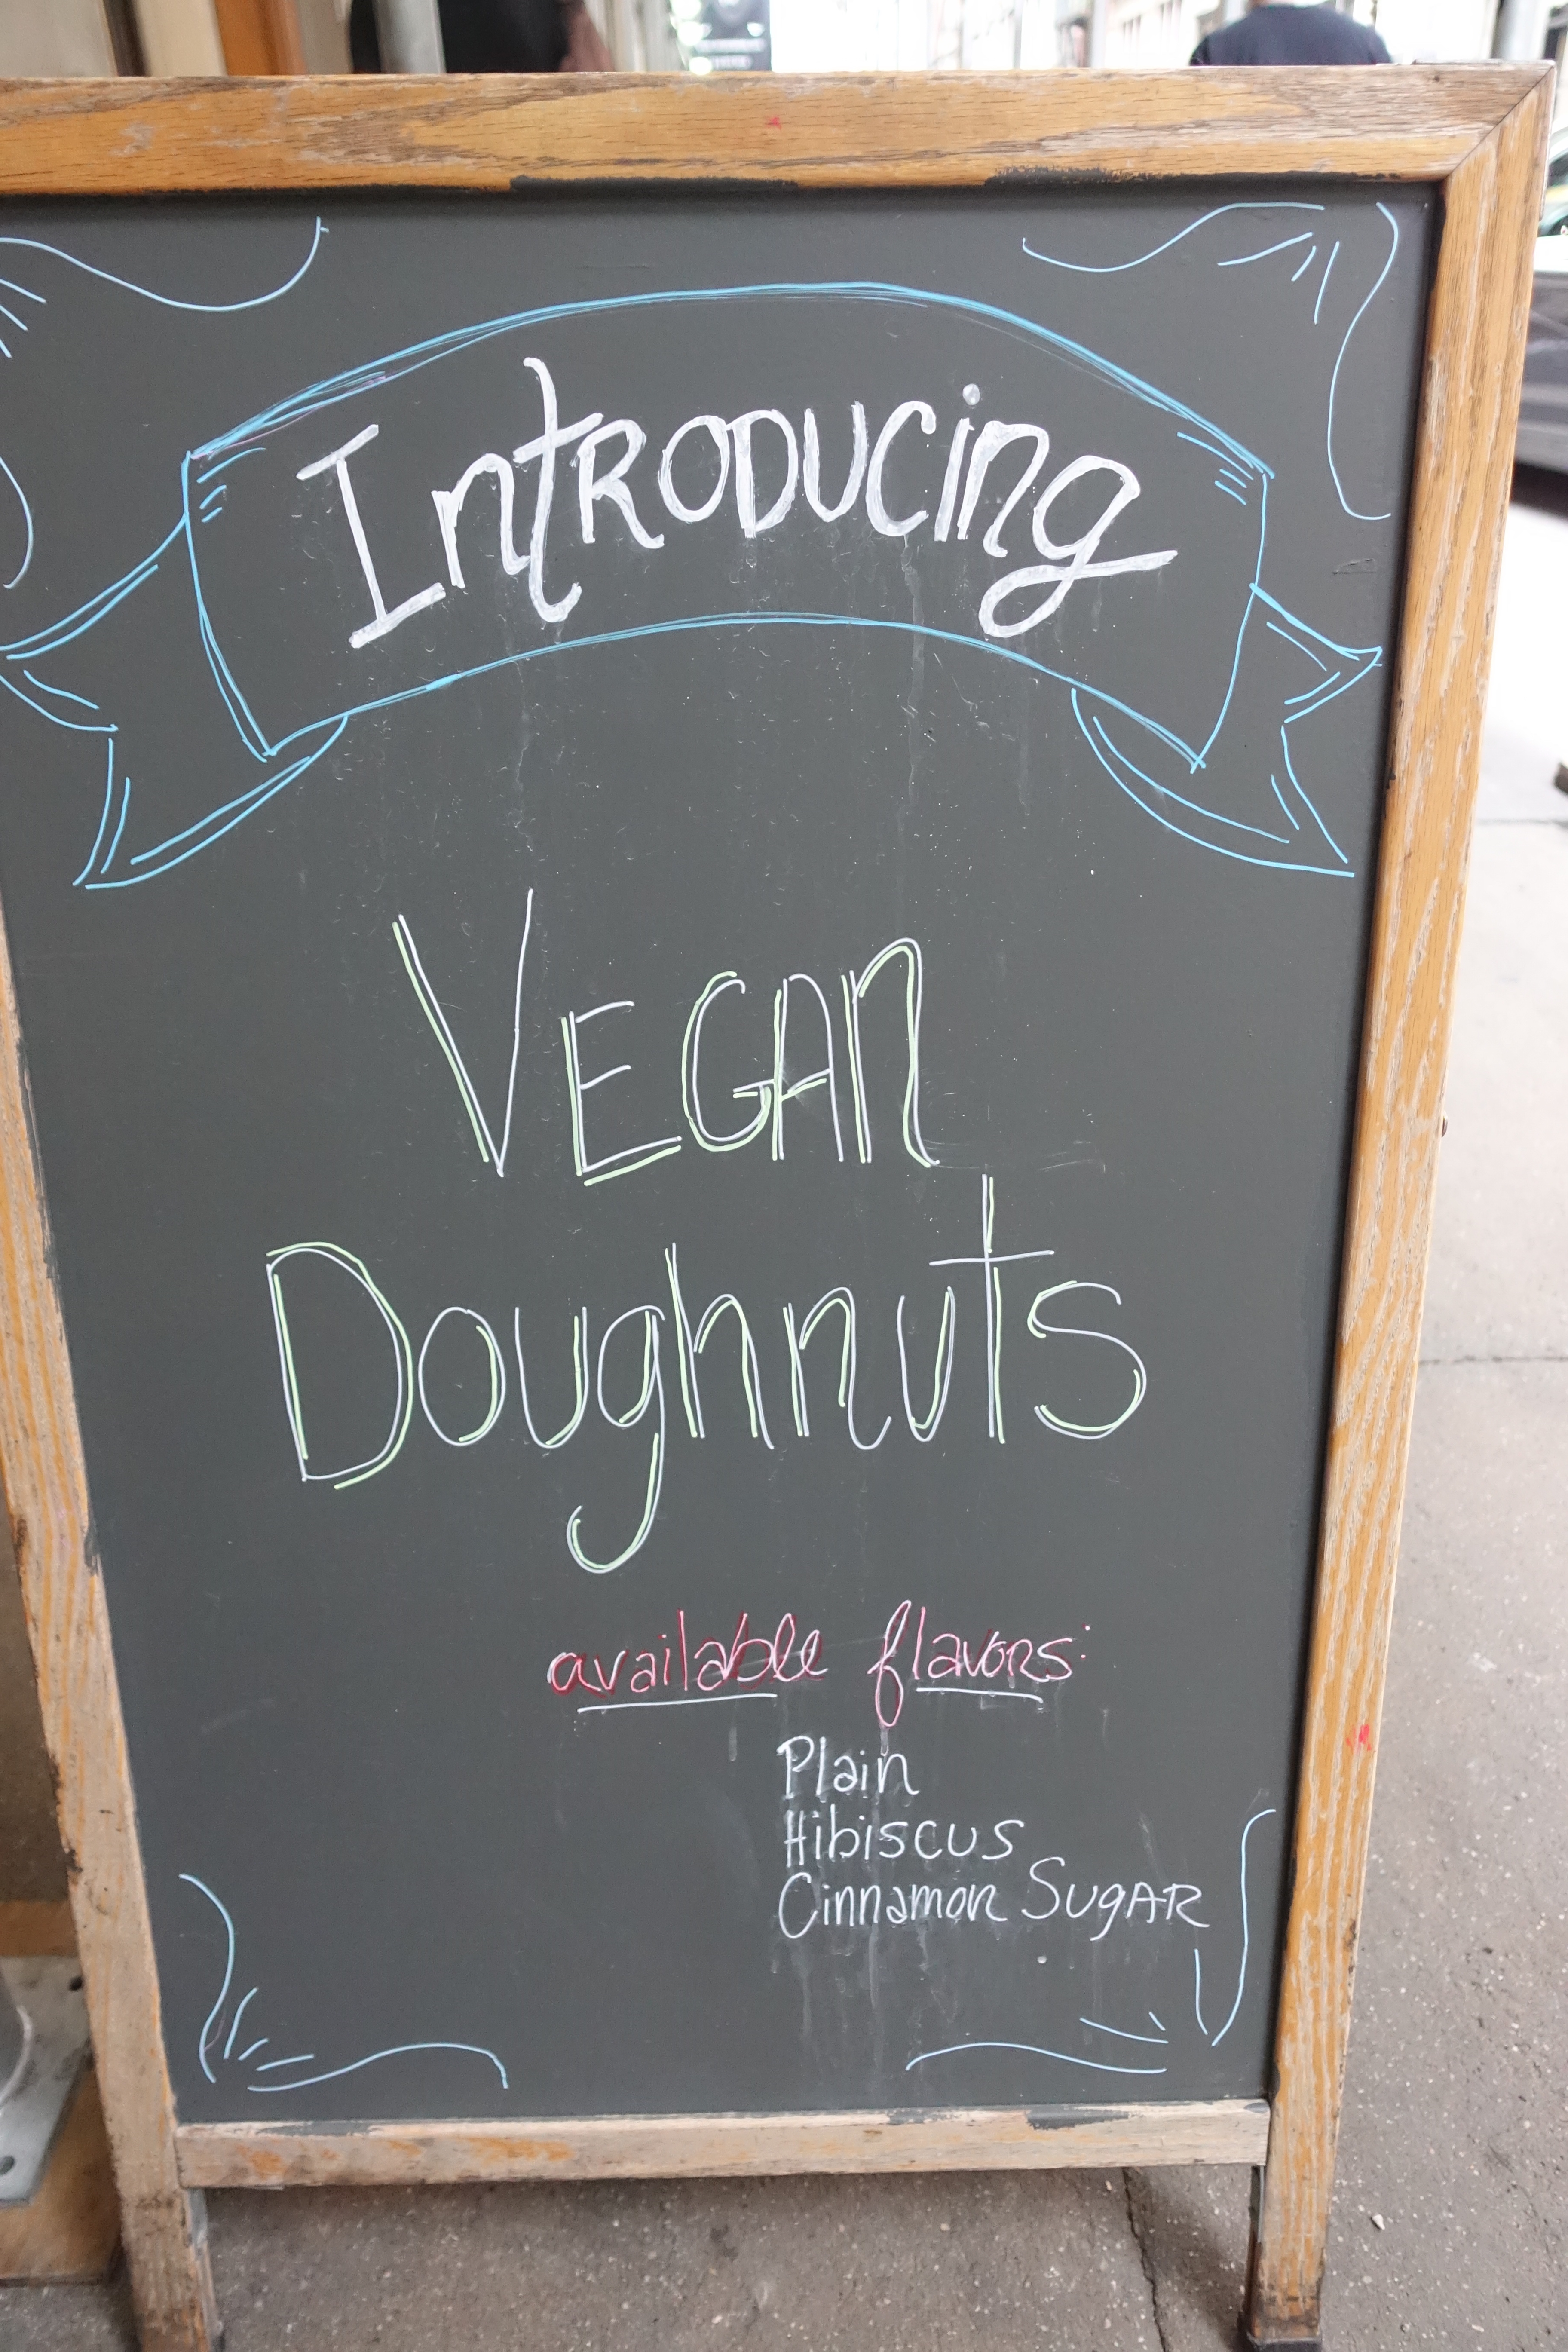 Introducing
VEGAN
Doughnuts
available flavors:
Plain
Hibiscus
Cinnamon Sugar